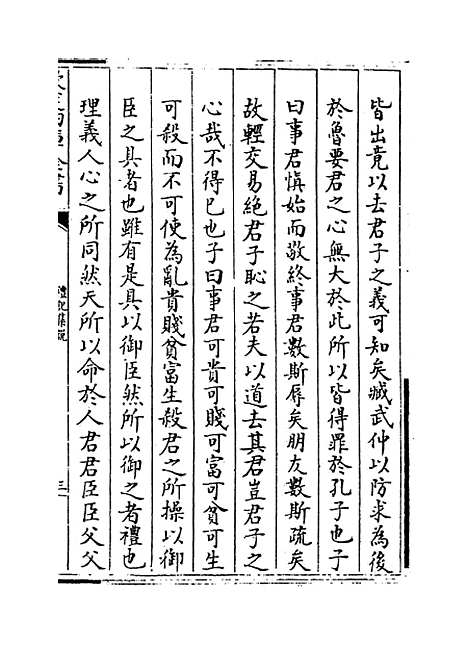 皆出竟以去君子之義可知矣臧武仲以防求為後
於魯要君之心無大於此所以皆得罪於孔子也子
曰事君慎始而敬終事君數斯辱矣朋友數斯疏矣
故輕交易絶君子恥之若夫以道去其君豈君子之
心哉不得已也子曰事君可貴可賤可富可貧可生
可殺而不可使為亂貴賤貧富生殺君之所操以御
臣之具者也雖有是具以御臣然所以御之者禮也
理義人心之所同然天所以命於人君君臣臣父父
禮記集說
三